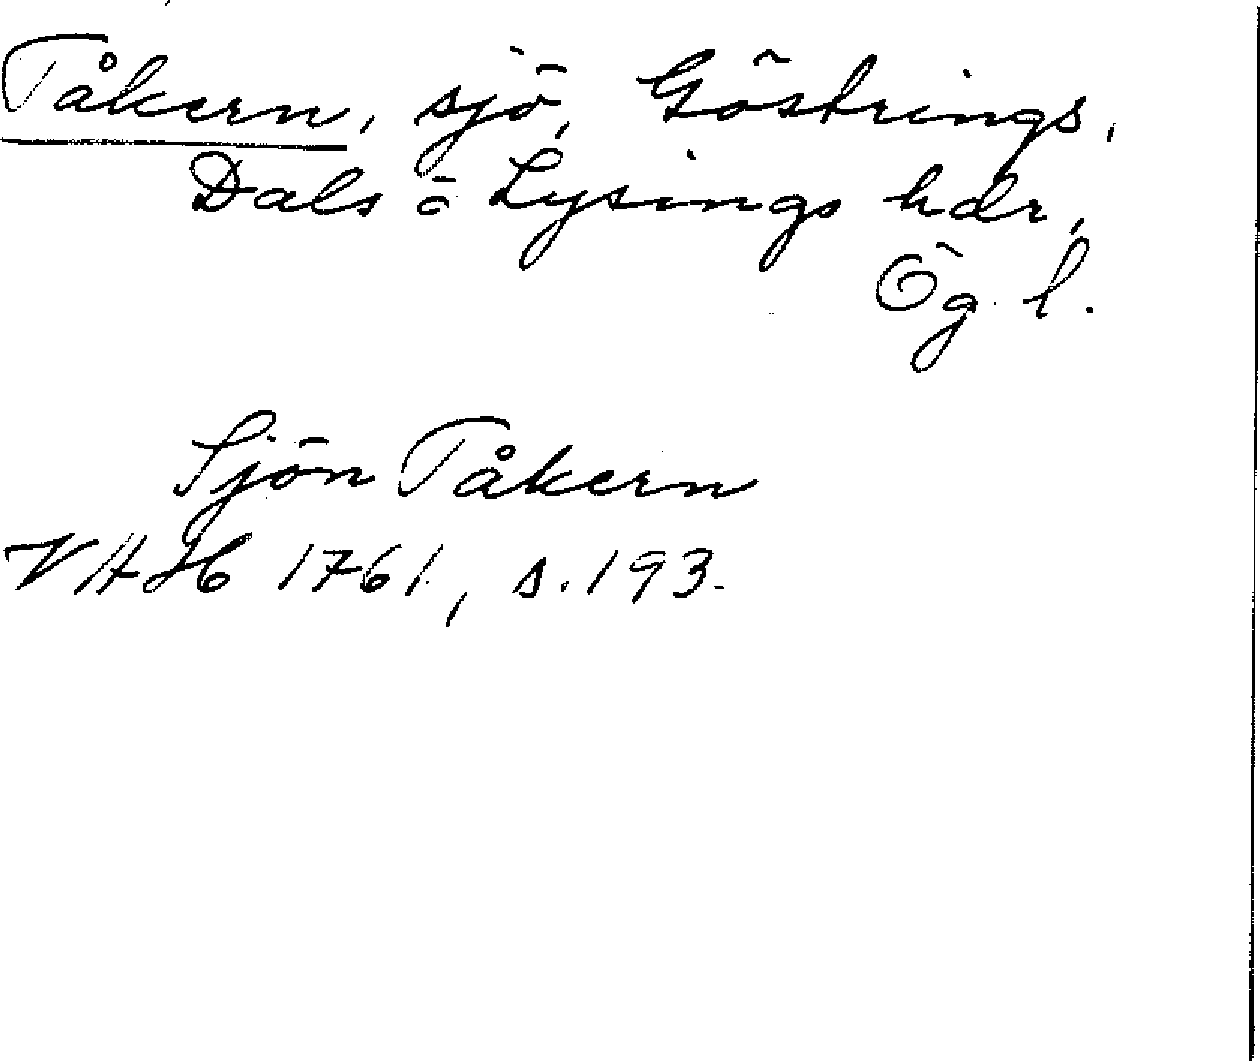 Tåkern, sjö, Göstrings,
Dals o Lysings hdr,
Ög. l.
Sjön Tåkern
VAH 1761, s. 193.